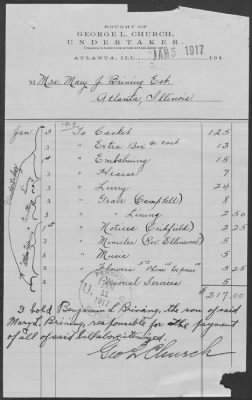 BOUGHT OF
GEORGE L. CHURCH,
UNDERTAKER.
ATLANTA, ILL. JAN 5 1917 191
M Mrs. Mary J. Brining Est.
Atlanta, Illinois
1917
Jan 3 To Casket 125
3 " Extra Box & cost 13
3 " Embalming 15
3 " Hearse 7
3 " Livry 24
" Grave (Campbell) 8
" " Lining 2 50
" Notices (Enfield) 2 25
" Minister (Rev. Ellinwood) 5
" Music 5
" Flowers 5 25
" Personal Services 5
$217.00
I hold Benjamin L Brining, the son of said
Mary J. Brining, responsible for the payment
of all of said bill above itemized.
Geo L Church